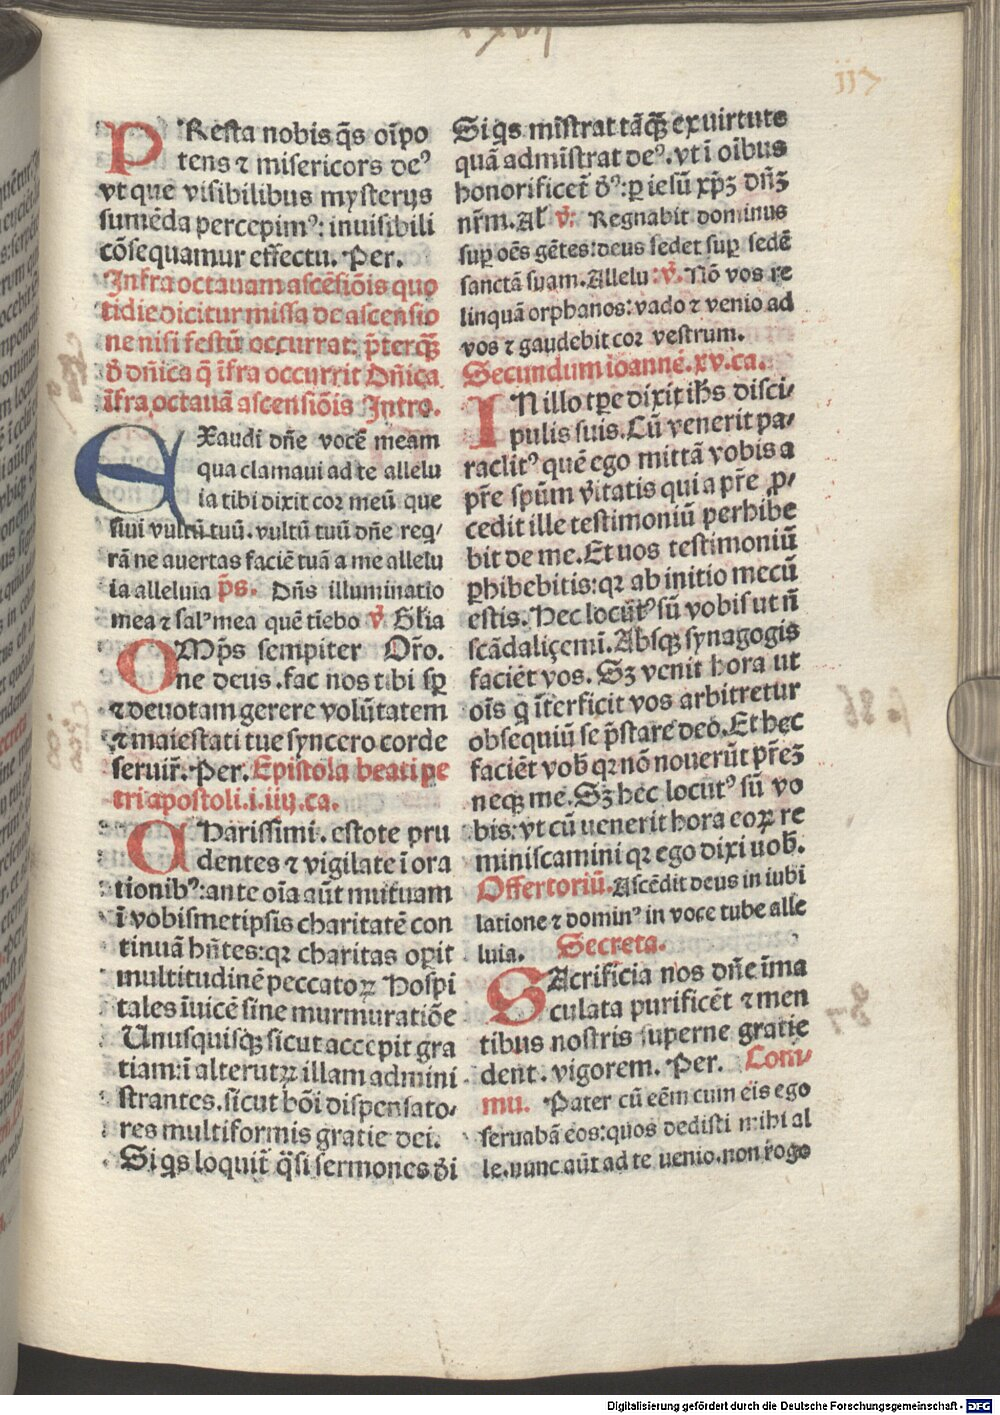 117
PResta nobis q̄s oīpo
tens ⁊ misericors deꝰ
vt que visibilibus mysterijs
sumēda percepimꝰ: inuisibili
cōsequamur effectu. Per.
Infra octauam ascēsiōis quo
tidie dicitur missa de ascensio
ne nisi festū occurrat: p̄terq̄ꝫ
dn̄ica q̄ īfra occurrit Dn̄ica
īfra octauā ascensiōis Intro.
EXaudi dn̄e vocē meam
qua clamaui ad te allelu
ia tibi dixit cor meū que
siui vultū tuū. vultū tuū dn̄e req̄
rā ne auertas faciē tuā a me allelu
ia alleluia p̄s. Dn̄s illuminatio
mea ⁊ salꝰ mea quē tīebo v̄ Gl̄ia
OMp̄s sempiter Or̄o.
ne deus. fac nos tibi sꝑ
⁊ deuotam gerere volūtatem
⁊ maiestati tue syncero corde
seruir̄. Per. Epistola beati pe
tri apostoli. i. iiij. ca.
CHarissimi. estote pru
dentes ⁊ vigilate ī ora
tionibꝰ: ante oīa aūt mutuam
ī vobismetipsis charitatē con
tinuā hn̄tes: qꝛ charitas oꝑit
multitudinē peccatoꝝ Hospi
tales īuicē sine murmuratiōe
Unusquisqꝫ sicut accepit gra
tiam: ī alterutꝝ illam admini
strantes. sicut bōi dispensato-
res multiformis gratie dei.
Si q̄s loquit̄ q̄si sermones d̄i
Si q̄s mīstrat tāq̄ꝫ ex uirtute
quā admīstrat deꝰ. vt ī oībus
honorificet̄ d̄ꝰ: ꝑ iesū xp̄ꝫ dn̄ꝫ
nr̄m. Al̄ v̄: Regnabit dominus
suꝑ oēs gētes: deus sedet suꝑ sedē
sanctā suam. Allelu: v̄. Nō vos re
linquā orphanos: vado ⁊ venio ad
vos ⁊ gaudebit cor vestrum.
Secundum ioannē. xv. ca.
IN illo tꝑe dixit ih̄s disci-
pulis suis. Cū venerit pa-
raclitꝰ quē ego mittā vobis a
pr̄e spūm v̄itatis qui a pr̄e ꝓ-
cedit ille testimoniū perhibe
bit de me. Et uos testimoniū
ꝑhibebitis: qꝛ ab initio mecū
estis. Hec locūtꝰ sū vobis ut n̄
scādaliçemī. Absqꝫ synagogis
faciēt vos. Sꝫ venit hora ut
oīs q̄ īterficit vos arbitretur
obsequiū se p̄stare deo. Et hec
faciēt vob̄ qꝛ nō nouerūt pr̄eꝫ
neqꝫ me. Sꝫ hec locutꝰ sū vo
bis: vt cū uenerit hora eoꝝ re
miniscamini qꝛ ego dixi uob̄.
Offertoriū. Ascēdit deus in iubi
latione ⁊ dominꝰ in voce tube alle
luia. Secreta.
SAcrificia nos dn̄e īma
culata purificēt ⁊ men
tibus nostris superne gratie
dent. vigorem. Per. Com-
mu. Pater cū eēm cum eis ego
seruabā eos: quos dedisti mihi al
le. nunc aūt ad te uenio. non rogo
Digitalisierung gefördert durch die Deutsche Forschungsgemeinschaft - DFG